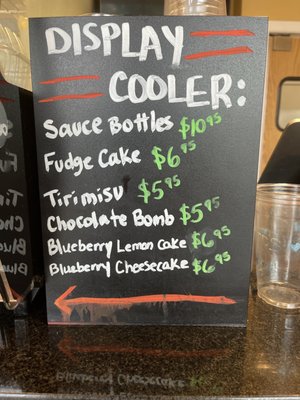 DISPLAY
COOLER:
Sauce Bottles $10.95
Fudge Cake $6.95
Tirimisu $5.95
Chocolate Bomb $5.95
Blueberry Lemon Cake $6.95
Blueberry Cheesecake $6.95